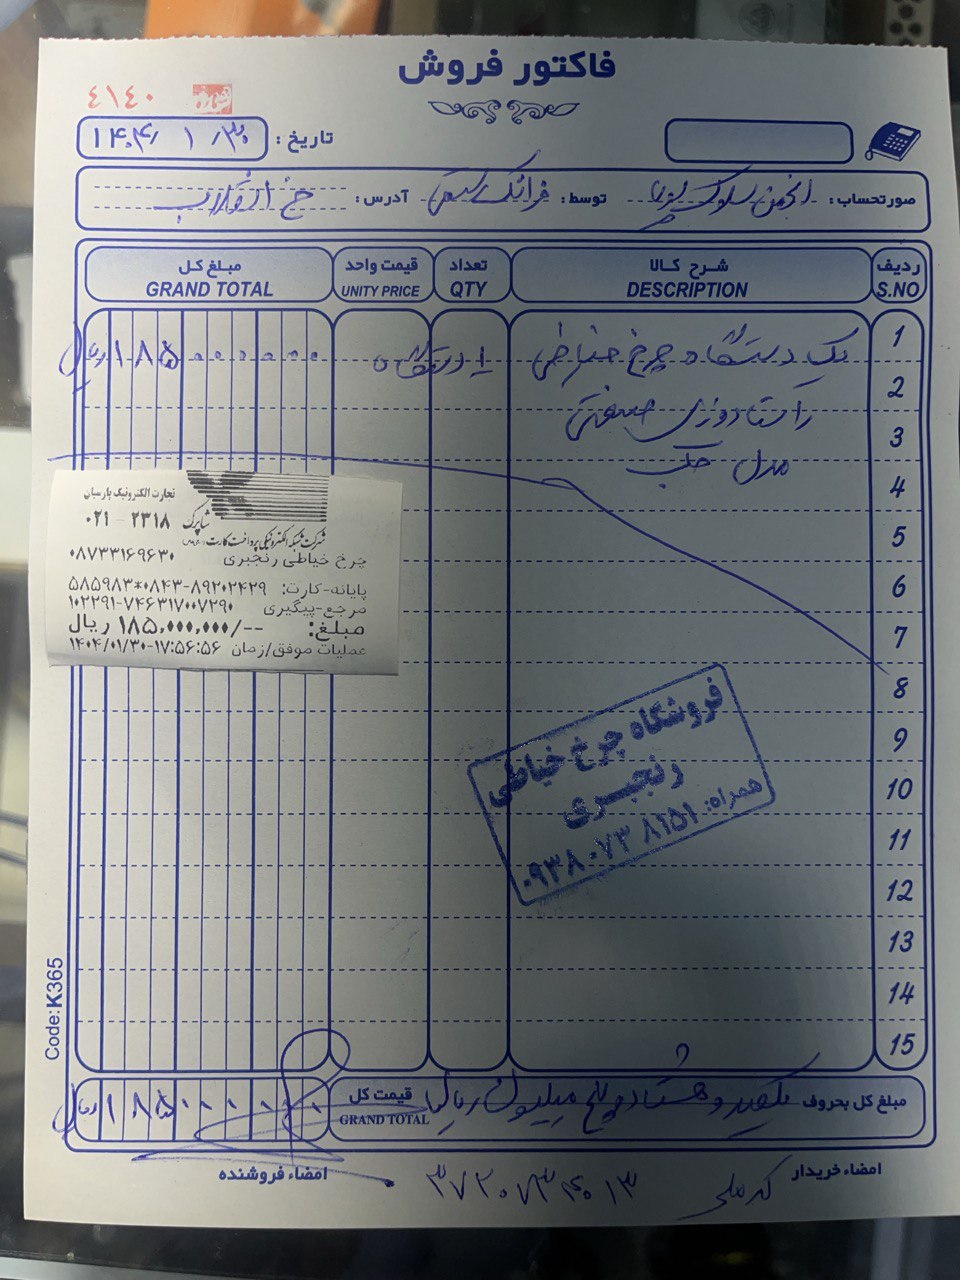 فاکتور فروش
شماره ٤١٤٠
تاریخ : ۱۴۰۴/ ۱ /۳۰
صورتحساب : انجمن سلوک توسط : آدرس : خ انقلاب
ردیف شرح کالا تعداد قیمت واحد مبلغ کل
S.NO DESCRIPTION QTY UNITY PRICE GRAND TOTAL
1 یک دستگاه چرخ خیاطی ۱ دستگاه ۱۸۵۰۰۰۰۰۰ ریال
2 راستادوزی صنعتی
3 مدل جک
4
5
6
7
8
9
10
11
12
13
14
15
تجارت الکترونیک پارسیان
شاپرک ۰۲۱ - ۲۳۱۸
شرکت شبکه الکترونیکی پرداخت کارت
چرخ خیاطی رنجبری ۰۸۷۳۳۱۶۹۶۳۰
پایانه-کارت: ۵۸۵۹۸۳*۰۸۴۳-۸۹۲۰۲۴۲۹
مرجع-پیگیری ۱۰۲۲۹۱-۷۴۶۳۱۷۰۰۷۲۹۰
مبلغ: ۱۸۵,۰۰۰,۰۰۰/-- ریال
عملیات موفق/زمان ۱۴۰۴/۰۱/۳۰-۱۷:۵۶:۵۶
فروشگاه چرخ خیاطی
رنجبری
همراه: ۰۹۳۸۰۷۳۸۱۵۱
Code:K365
مبلغ کل بحروف یکصد و هشتاد و پنج میلیون ریال قیمت کل ۱۸۵۰۰۰۰۰۰ ریال
GRAND TOTAL
امضاء خریدار امضاء فروشنده
کد ملی ۳۷۲۰۷۳۴۰۱۳